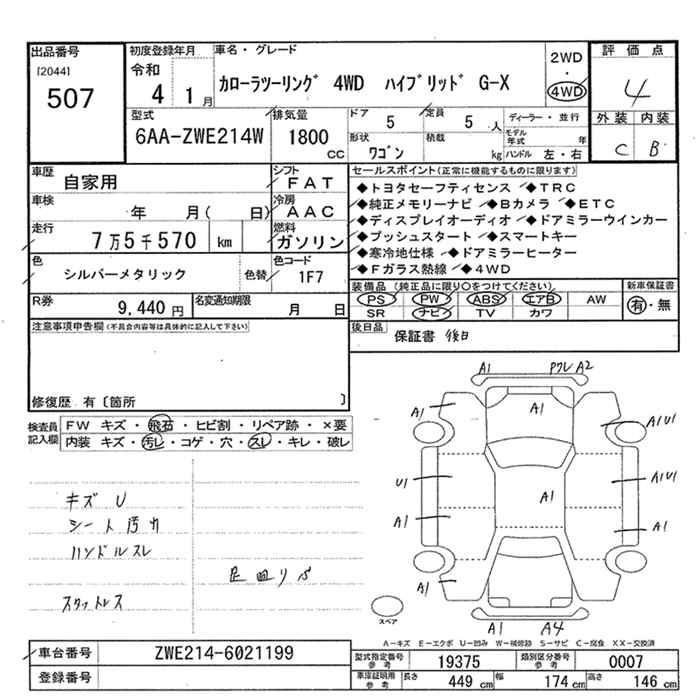 出品番号
[2044]
507
初度登録年月
令和
4 1月
車名・グレード
カローラツーリング 4WD ハイブリッド G-X
2WD
・
4WD
評価点
4
外装 内装
C B
型式
6AA-ZWE214W
排気量
1800
CC
ドア
5
定員
5 人
形状
ワゴン
積載
kg
ディーラー・並行
モデル年式
年
ハンドル 左・右
車歴
自家用
シフト
FAT
車検
年 月( 日)
冷房
AAC
走行
7万5千570 km
燃料
ガソリン
色
シルバーメタリック
色替
色コード
1F7
R券
9,440円
名変通知期限
月 日
セールスポイント(正常に機能するものに限ります)
◆トヨタセーフティセンス ◆TRC
◆純正メモリーナビ ◆Bカメラ ◆ETC
◆ディスプレイオーディオ ◆ドアミラーウインカー
◆プッシュスタート ◆スマートキー
◆寒冷地仕様 ◆ドアミラーヒーター
◆Fガラス熱線 ◆4WD
装備品 (純正品に限り○をつけてください。)
PS PW ABS エアB AW
SR ナビ TV カワ
新車保証書
有・無
後日品
保証書 後日
注意事項申告欄(不具合内容等は具体的に記入して下さい)
修復歴 有〔箇所 〕
検査員
記入欄
FW キズ・飛石・ヒビ割・リペア跡・×要
内装 キズ・汚レ・コゲ・穴・スレ・キレ・破レ
キズ U
シート汚れ
ハンドルスレ
スタットレス
A1
A2
A1
A1
A1U1
U1
A1
A1U1
A1
A1
A1
A1
A4
スペア
A-キズ E-エクボ U-凹み W-補修跡 S-サビ C-腐食 XX-交換済
車台番号
ZWE214-6021199
登録番号
型式指定番号
参考
19375
類別区分番号
参考
0007
車庫証明用
参考
長さ
449 cm
幅
174 cm
高さ
146 cm